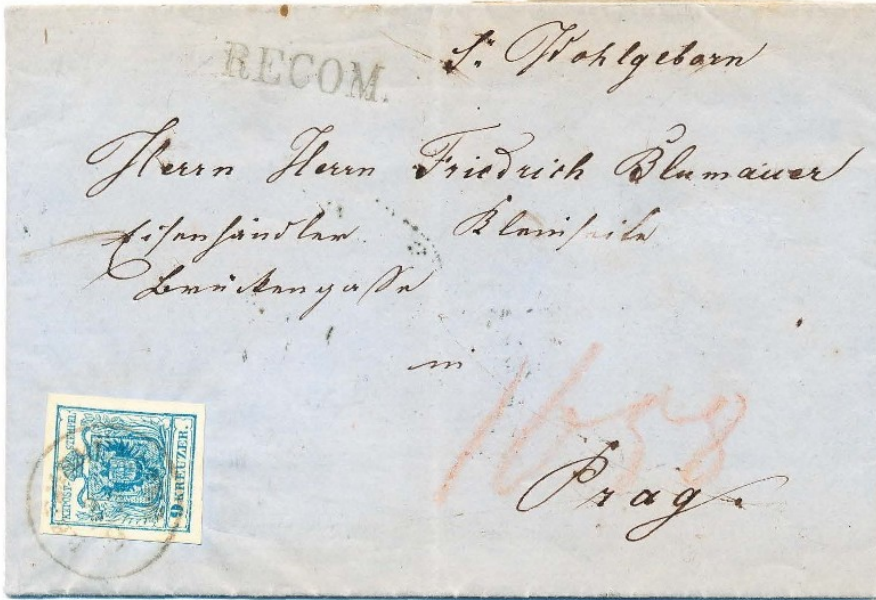 RECOM.
Sr. Wohlgeborn
Herrn Herrn Friedrich Blumauer
Eisenhändler Kleinseite
Brückengasse
in
Prag
K.K.POST-STEMPEL
9 KREUZER.